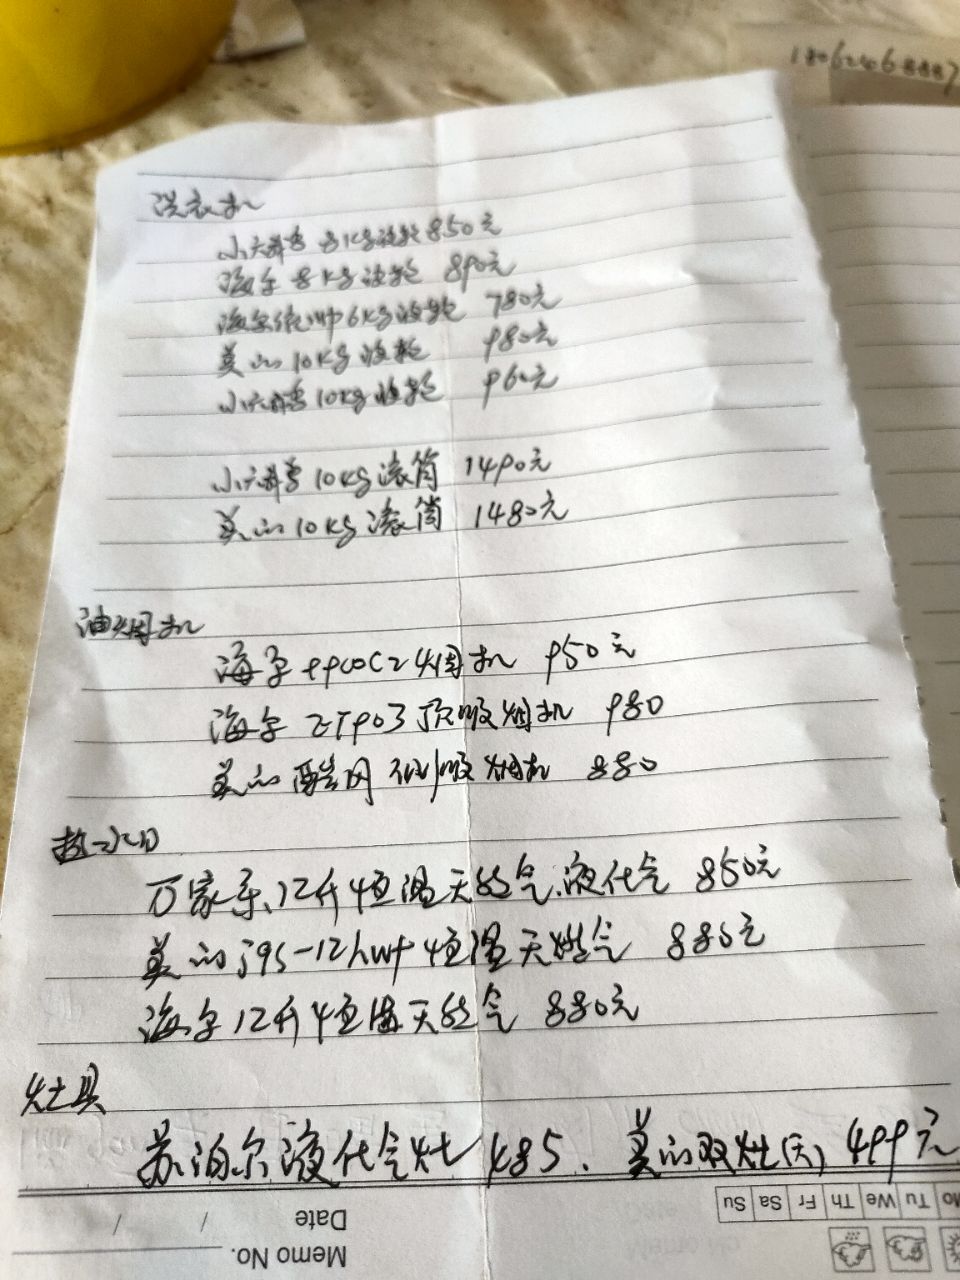 洗衣机
小天鹅 8kg波轮 850元
海尔 8kg波轮 890元
海尔统帅6kg波轮 780元
美的10kg波轮 980元
小天鹅10kg波轮 960元
小天鹅10kg滚筒 1490元
美的10kg滚筒 1480元
油烟机
海尔 烟机 950元
海尔 顶吸烟机 980
美的 侧吸烟机 880
热水
万家乐12升恒温天然气.液化气 850元
美的 恒温天然气 880元
海尔12升恒温天然气 880元
灶具
苏泊尔液化气灶 485. 美的双灶(天) 499元
Date / /
Memo No.
Mo Tu We Th Fr Sa Su